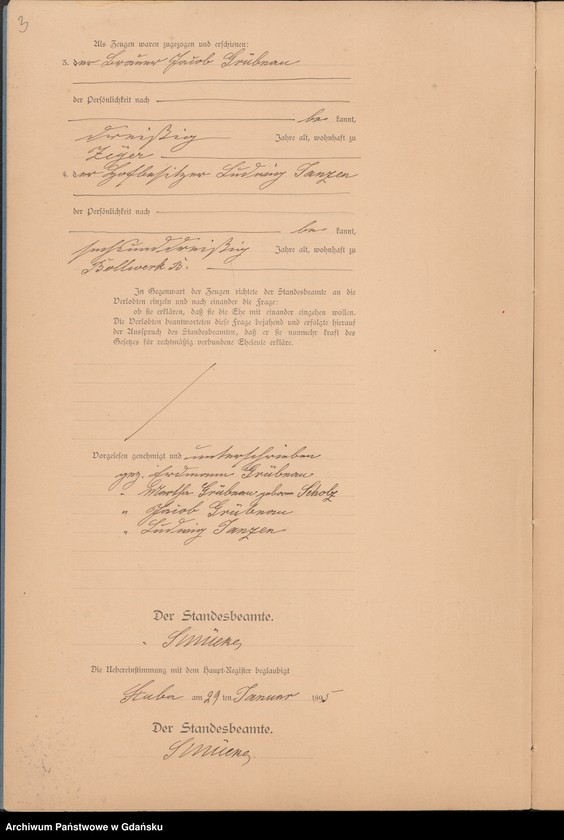 3
Als Zeugen waren zugezogen und erschienen:
3. der Brauer Jacob Grübnau
der Persönlichkeit nach
be kannt,
dreißig Jahre alt, wohnhaft zu
Zeyer
4. der Hofbesitzer Ludwig Janzen
der Persönlichkeit nach
be kannt,
sechsunddreißig Jahre alt, wohnhaft zu
Bollwerk
In Gegenwart der Zeugen richtete der Standesbeamte an die
Verlobten einzeln und nach einander die Frage:
ob sie erklären, daß sie die Ehe mit einander eingehen wollen.
Die Verlobten beantworteten diese Frage bejahend und erfolgte hierauf
der Ausspruch des Standesbeamten, daß er sie nunmehr kraft des
Gesetzes für rechtmäßig verbundene Eheleute erkläre.
Vorgelesen genehmigt und unterschrieben
gez. Erdmann Grübnau
" Martha Grübnau geborne Scholz
" Jacob Grübnau
" Ludwig Janzen
Der Standesbeamte.
"
Die Uebereinstimmung mit dem Haupt-Register beglaubigt
Stuba am 29 ten Januar 1895
Der Standesbeamte.
Archiwum Państwowe w Gdańsku